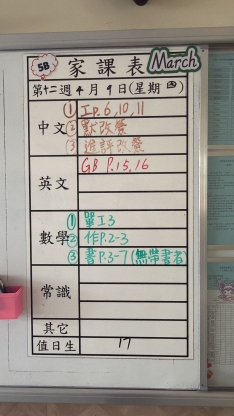 5B 家課表 March
第十二週 4 月 9 日(星期四)
中文 ① 工P.6,10,11
② 默改簽
③ 進評改簽
英文 GB P.15,16
數學 ① 單工3
② 作P.2-3
③ 書P.3-7(無帶書者)
常識
其它
值日生 17